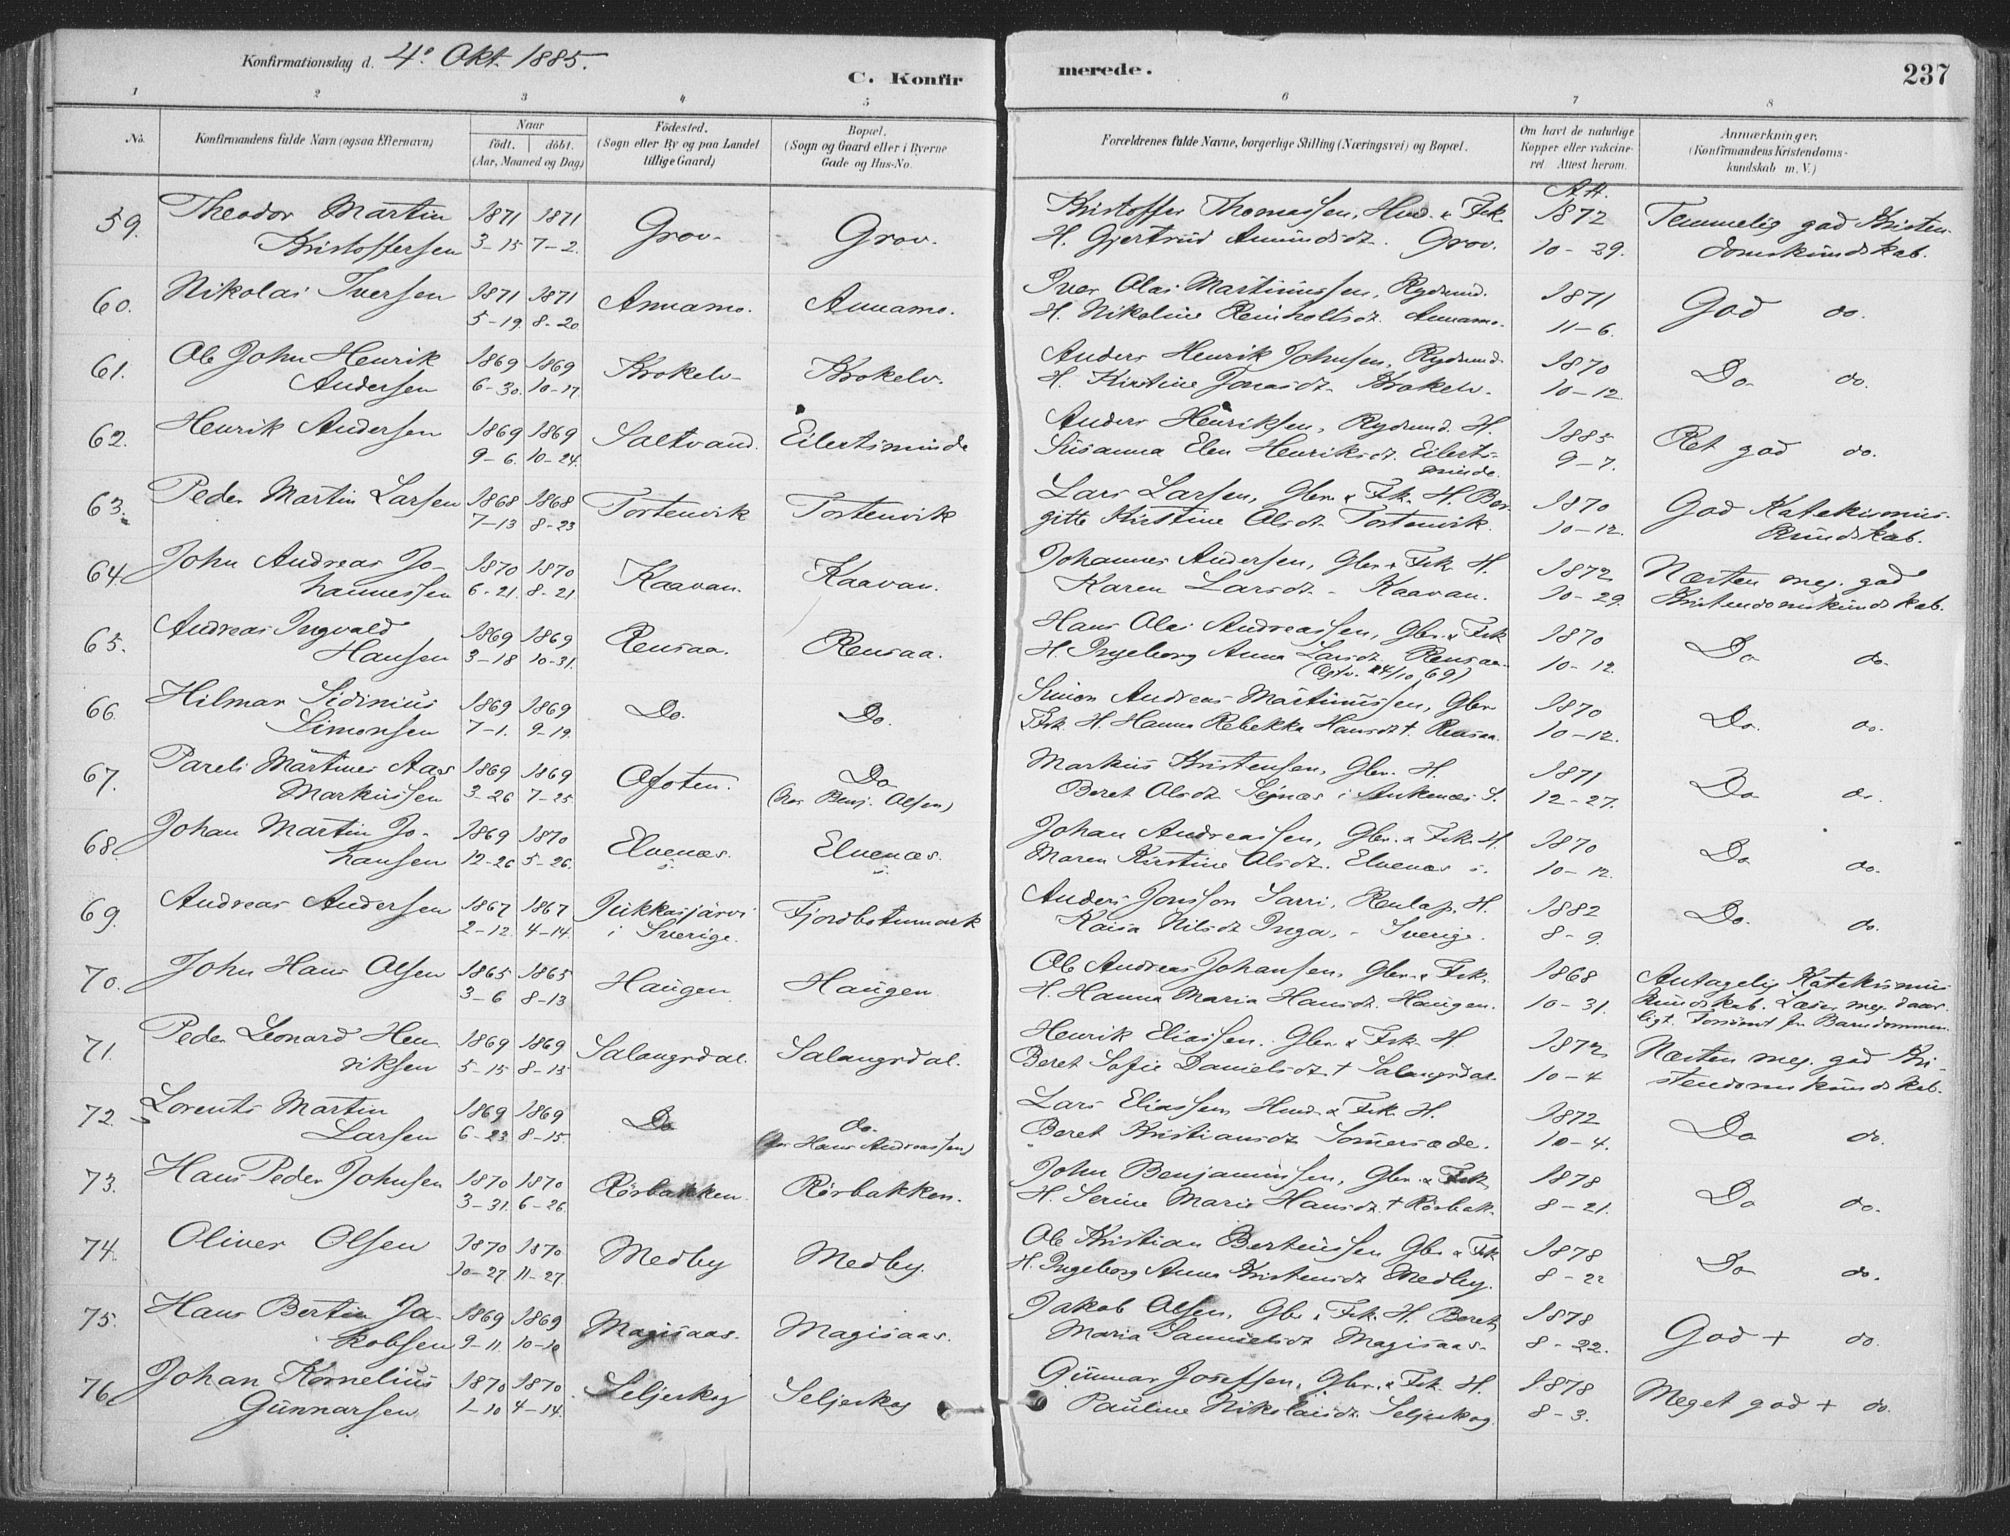 Konfirmationsdag d. 4° Okt. 1885.
C. Konfirmerede.
237
1 2 3 4 5 6 7 8
No.
Konfirmandens fulde Navn (ogsaa Efternavn)
Naar
født. | døbt.
(Aar, Maaned og Dag)
Fødested.
(Sogn eller By og paa Landet
tillige Gaard)
Bopæl.
(Sogn og Gaard eller i Byerne
Gade og Hus-No.
Forældrenes fulde Navne, borgerlige Stilling (Næringsvei) og Bopæl.
Om havt de naturlige
Kopper eller vakcine-
ret. Attest herom.
Anmærkninger.
(Konfirmandens Kristendoms-
kundskab m. V.)
59. Theodor Martin 1871 1871 Grov. Grov. Kristoffer Thomassen, Hmd. & Fsk. 1872 Temmelig god Kristen-
Kristoffersen 3-15 7-2. H. Gjertrud Amundsdt. Grov. 10-29. domskundskab.
60. Nikolai Iversen 1871 1871 Annamo. Annamo. Iver Olai Martinussen, Rydmd. 1871 God do.
5-19 8-20 H. Nikoline Reinholtsdt. Annamo. 11-6.
61. Ole John Henrik 1869 1869 Krokelv. Krokelv. Anders Henrik Johnsen, Rydmd. 1870 Do do.
Andersen 6-30. 10-17. H. Kirstine Jonasdt. Krokelv. 10-12.
62. Henrik Andersen 1869 1869 Saltvand. Eilertsminde Anders Henriksen, Rydmd. H. 1885 Ret god do.
9-6. 10-24. Susanna Elen Henriksdt. Eilerts- 9-7.
minde.
63. Peder Martin Larsen 1868 1868 Tortenvik Tortenvik Lars Larsen, Gbr. & Fsk. H. Ber- 1870 God Katekismus-
7-13 8-23 gitte Kirstine Olsdt. Tortenvik. 10-12. kundskab.
64. John Andreas Jo- 1870 1870 Kaavan. Kaavan. Johannes Andersen, Gbr. & Fsk. H. 1872 Næsten meg. god
hannessen 6-21. 8-21 Karen Larsdt. - Kaavan. 10-29. Kristendomskundskab.
65. Andreas Ingvald 1869 1869 Rensaa. Rensaa. Hans Olai Andreassen, Gbr. & Fsk 1870 Do do.
Hansen 3-18 10-31. H. Ingeborg Anna Larsdt. Rensaa. 10-12.
66. Hilmar Sidinius 1869 1869 Do. Do. Simon Andreas Martinussen, Gbr. 1870 Do. do.
Simonsen 7-1. 9-19. Fsk. H. Hanna Rebekka Hansdt † Rensaa. 10-12.
67. Pareli Martines Aas 1869 1869 Ofoten. Do Markus Kristensen, Gbr. H. 1871 Do do.
Markussen 3-26 7-25 (hos Benj. Olsen) Beret Olsdt. i Ankenæs S. 12-27.
68. Johan Martin Jo- 1869 1870 Elvenæs. Elvenæs. Johan Andreassen, Gbr. & Fsk. H. 1870 Do do.
hansen 12-26 5-26. i. i. Maren Kirstine Olsdt. Elvenæs i. 10-12.
69. Andreas Andersen 1867 1867 Jukkasjärvi Fjordbotnmark Anders Jonsson Sarri, Renlap. H. 1882 Do. do.
2-12. 4-14. i Sverige. Kaisa Nilsdt Inga, - Sverige. 8-9.
70. John Hans Olsen 1865 1865 Haugen Haugen. Ole Andreas Johansen, Gbr. & Fsk. 1868 Antagelig Katekismus
3-6 8-13 H. Hanna Maria Hansdt. Haugen. 10-31. kundskab. Læser meg. daar-
ligt. Forsømt fra Barndommen
71. Peder Leonard Hen 1869 1869 Salangsdal. Salangsdal. Henrik Eliassen. Gbr. & Fsk. H. 1872 Næsten meg. god Kri-
riksen 5-15 8-15 Beret Sofie Danielsdt † Salangsdal. 10-4 stendomskundskab.
72. Lorents Martin 1869 1869 Do do. Lars Eliassen Hmd. & Fsk. H. 1872 Do do.
Larsen 6-23 8-15. (hos Hans Andreassen) Beret Kristiansdt. Sommersæde. 10-4.
73. Hans Peder Johnsen 1870 1870 Rørbakken. Rørbakken. John Benjaminsen, Gbr. & Fsk. 1878 Do do.
3-31. 6-26. H. Serine Marie Hansdt. † Rørbak. 8-21.
74. Oliver Olsen 1870 1870 Medby Medby. Ole Kristian Berteussen Gbr. & Fsk 1878 Do do.
10-27 11-27. H. Ingeborg Anna Kristensdt. Medby. 8-22
75. Hans Bertin Ja- 1869 1869 Magisaas. Magisaas. Jakob Olsen, Gbr. & Fsk. H. Beret 1878 God + do.
kobsen 9-11. 10-10 Maria Samuelsdt Magisaas. 8-22.
76. Johan Kornelius 1870 1870 Seljeskog Seljeskog Gunnar Josefsen, Gbr. & Fsk. H. 1878 Meget god + do.
Gunnarsen 1-10 4-14. Pauline Nikolaisdt. Seljeskog. 8-3.